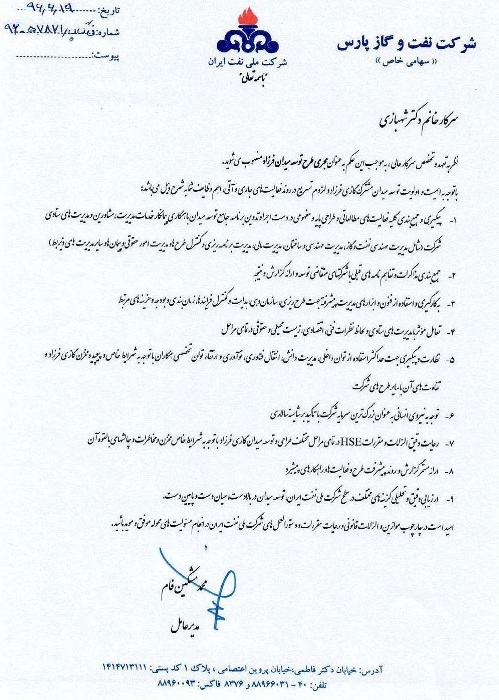 تاریخ: ۹۶/۶/۱۹
شماره:
پیوست:
شرکت ملی نفت ایران
باسمه تعالی
شرکت نفت و گاز پارس
« سهامی خاص »
سرکار خانم دکتر شهبازی
نظر به تعهد و تخصص سرکار عالی، به موجب این حکم به عنوان مجری طرح توسعه میدان فرزاد منصوب می شوید.
با توجه به اهمیت و اولویت توسعه میدان مشترک گازی فرزاد و لزوم تسریع در روند فعالیت های جاری و آتی، اهم وظایف شما به شرح ذیل می باشد:
۱- پیگیری و جمع بندی کلیه فعالیت های مطالعاتی و طراحی پایه و مفهومی در دست اجرا و تدوین برنامه جامع توسعه میدان با همکاری پیمانکار خدمات مدیریت، مشاورین و مدیریت های ستادی
شرکت (شامل مدیریت مهندسی نفت و گاز، مدیریت مهندسی و ساختمان، مدیریت مالی، مدیریت برنامه ریزی و کنترل طرح ها، مدیریت امور حقوقی و پیمان ها و سایر مدیریت های ذیربط)
۲- جمع بندی مذاکرات و تفاهم نامه های قبلی با شرکتهای متقاضی توسعه و ارائه گزارش و نتیجه
۳- بکارگیری و استفاده از فنون و ابزارهای مدیریت پیشرفته جهت طرح ریزی، سازمان دهی، هدایت و کنترل فرایندها، زمان بندی و بودجه و هزینه های مرتبط
۴- تعامل موثر با مدیریت های ستادی و لحاظ نظرات فنی، اقتصادی، زیست محیطی و حقوقی در تمامی مراحل
۵- نظارت و پیگیری جهت حداکثر استفاده از توان داخلی، مدیریت دانش، انتقال فناوری، نوآوری و ارتقاء توان تخصصی همکاران با توجه به شرایط خاص و پیچیده مخزن گازی فرزاد و
تفاوت های آن با سایر طرح های شرکت
۶- توجه به نیروی انسانی به عنوان بزرگ ترین سرمایه شرکت با تاکید بر شایسته سالاری
۷- رعایت دقیق الزامات و مقررات HSE در تمامی مراحل مختلف طراحی و توسعه میدان گازی فرزاد با توجه به شرایط خاص مخزن و مخاطرات و چالشهای بالقوه آن
۸- ارائه مستمر گزارش و روند پیشرفت طرح و فعالیت ها و راهکارهای پیشبرد
۹- ارزیابی دقیق و تحلیلی گزینه های مختلف در سطح شرکت ملی نفت ایران، توسعه میدان در بالادست، میان دست و پایین دست.
امید است در چارچوب موازین و الزامات قانونی و رعایت مقررات و دستورالعمل های شرکت ملی نفت ایران در انجام مسئولیت های محوله موفق و موید باشید.
محمد مشکین فام
مدیرعامل
آدرس: خیابان دکتر فاطمی،خیابان پروین اعتصامی ، پلاک ۱ کد پستی: ۱۴۱۴۷۱۳۱۱۱
تلفن: ۴۰ - ۸۸۹۶۶۰۳۱ و ۸۳۷۶ فاکس: ۸۸۹۶۰۰۹۳